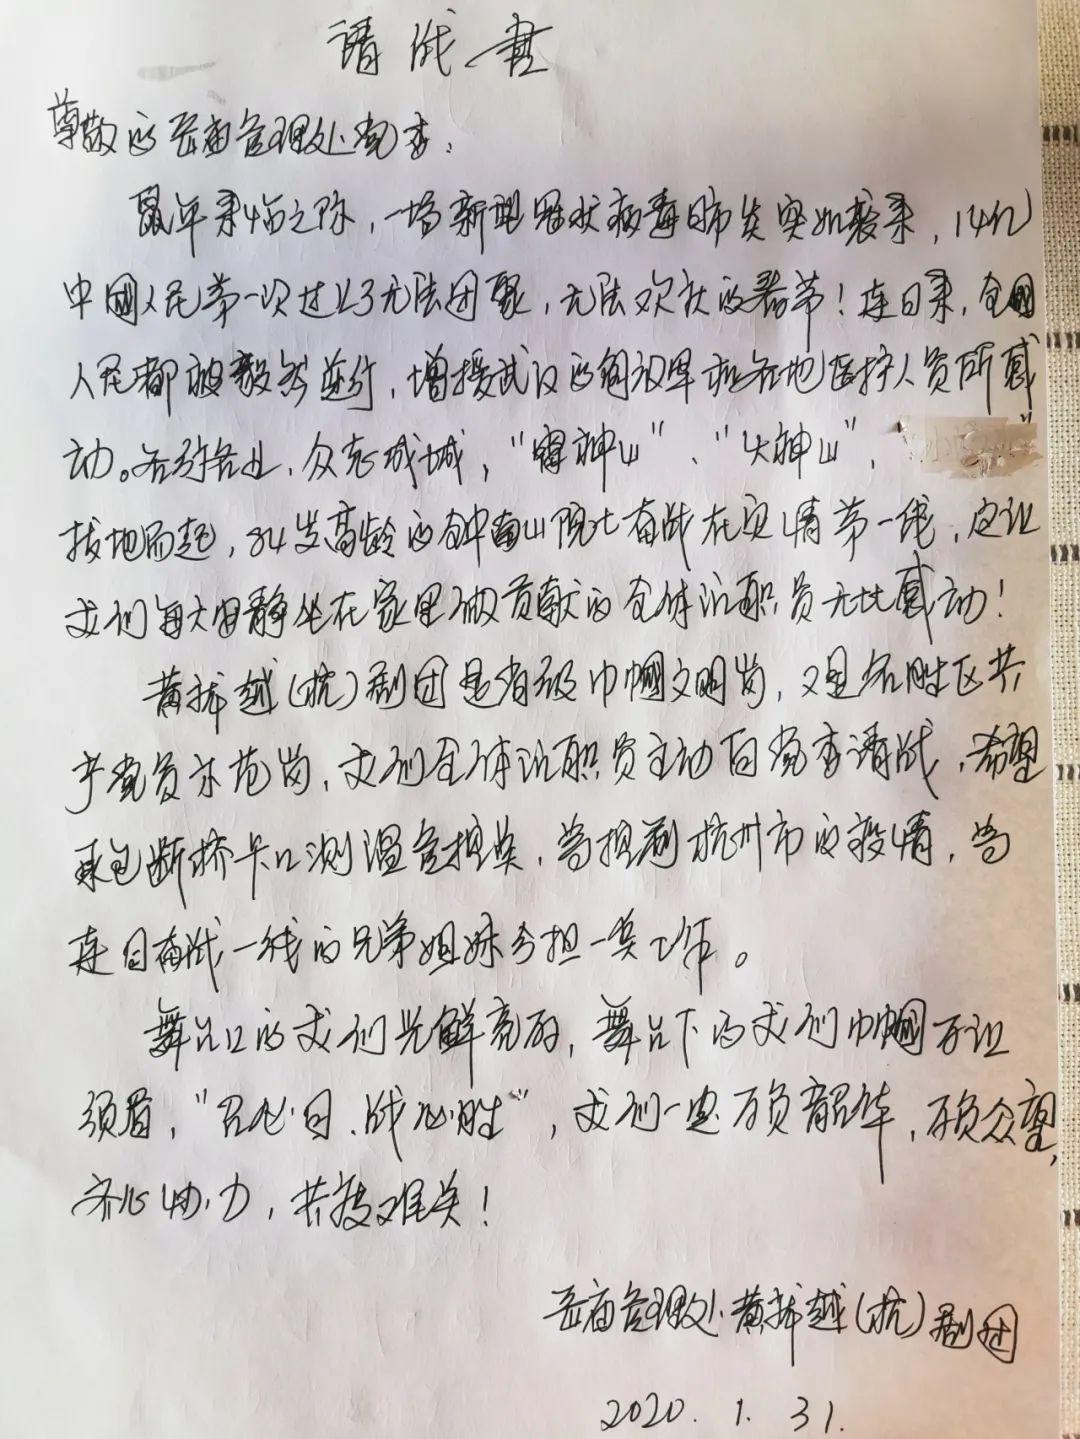 请战书
尊敬的岳庙管理处党委:
鼠年来临之际,一场新型冠状病毒肺炎突如袭来,14亿
中国人民第一次过上了无法团聚,无法欢庆的春节!连日来,全国
人民都被毅然逆行,增援武汉的解放军和各地医护人员所感
动。各行各业,众志成城,“雷神山”、“火神山”,
拔地而起,84岁高龄的钟南山院士奋战在疫情第一线,这让
我们每天安静坐在家里做贡献的全体演职员无比感动!
黄龙越(杭)剧团是省级巾帼文明岗,又是名胜区共
产党员示范岗,我们全体演职员主动向党委请战,希望
承包断桥卡口测温岗,当
连日奋战一线的兄弟姐妹分担一些工作。
舞台上的我们光鲜亮丽,舞台下的我们巾帼不让
须眉,“召必回、战必胜”,我们一定不负韶华,不负众望,
齐心协力,共渡难关!
岳庙管理处黄龙越(杭)剧团
2020.1.31.